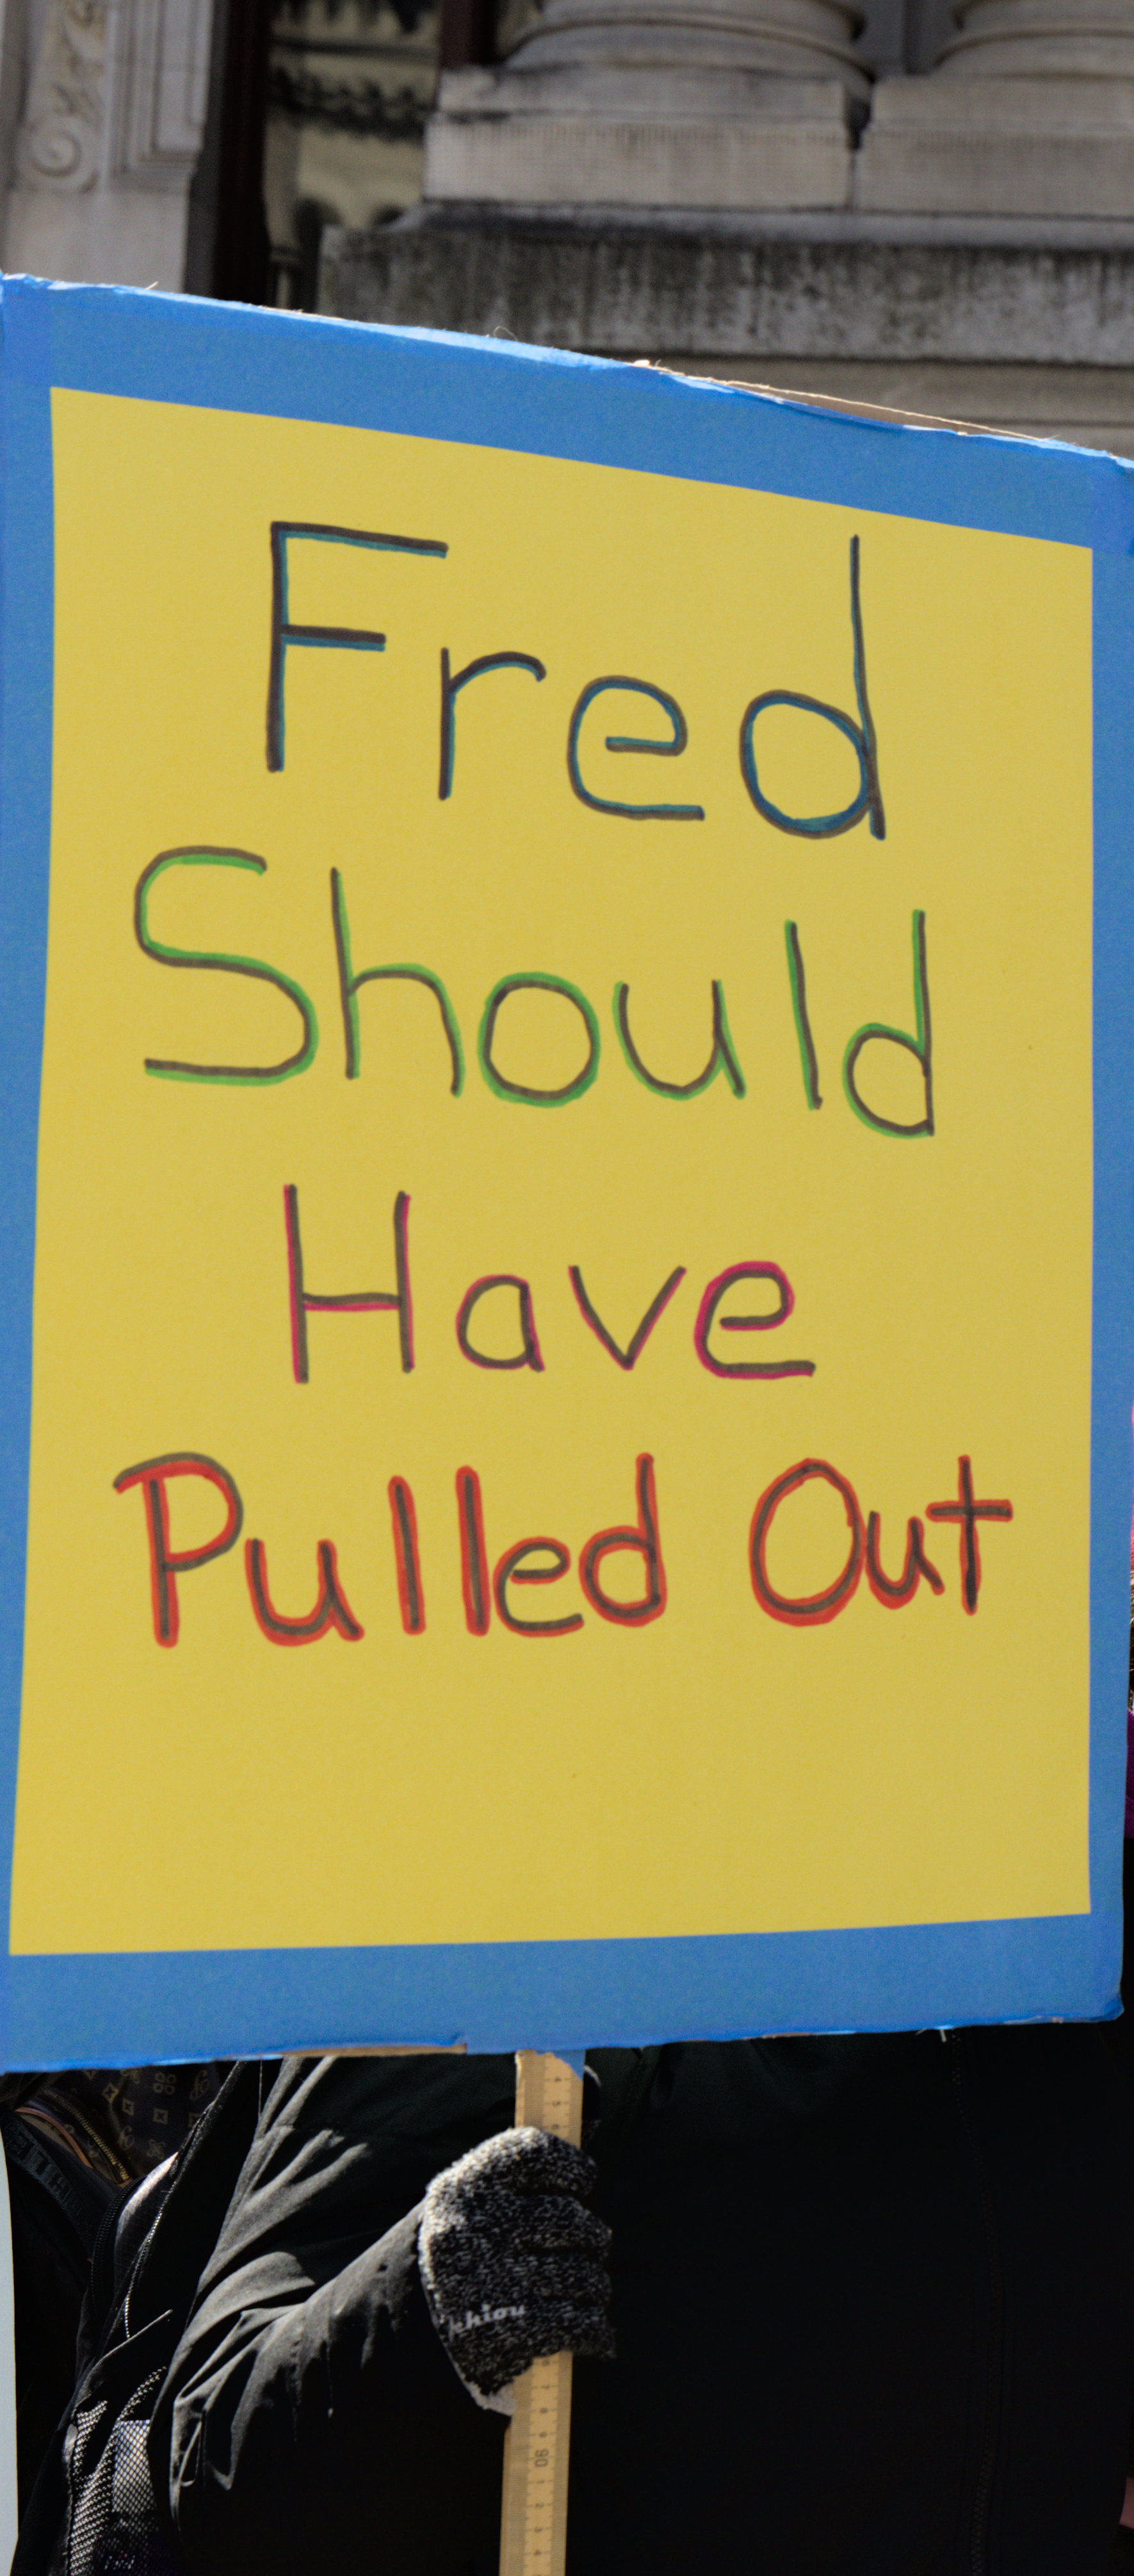 Fred
Should
Have
Pulled Out